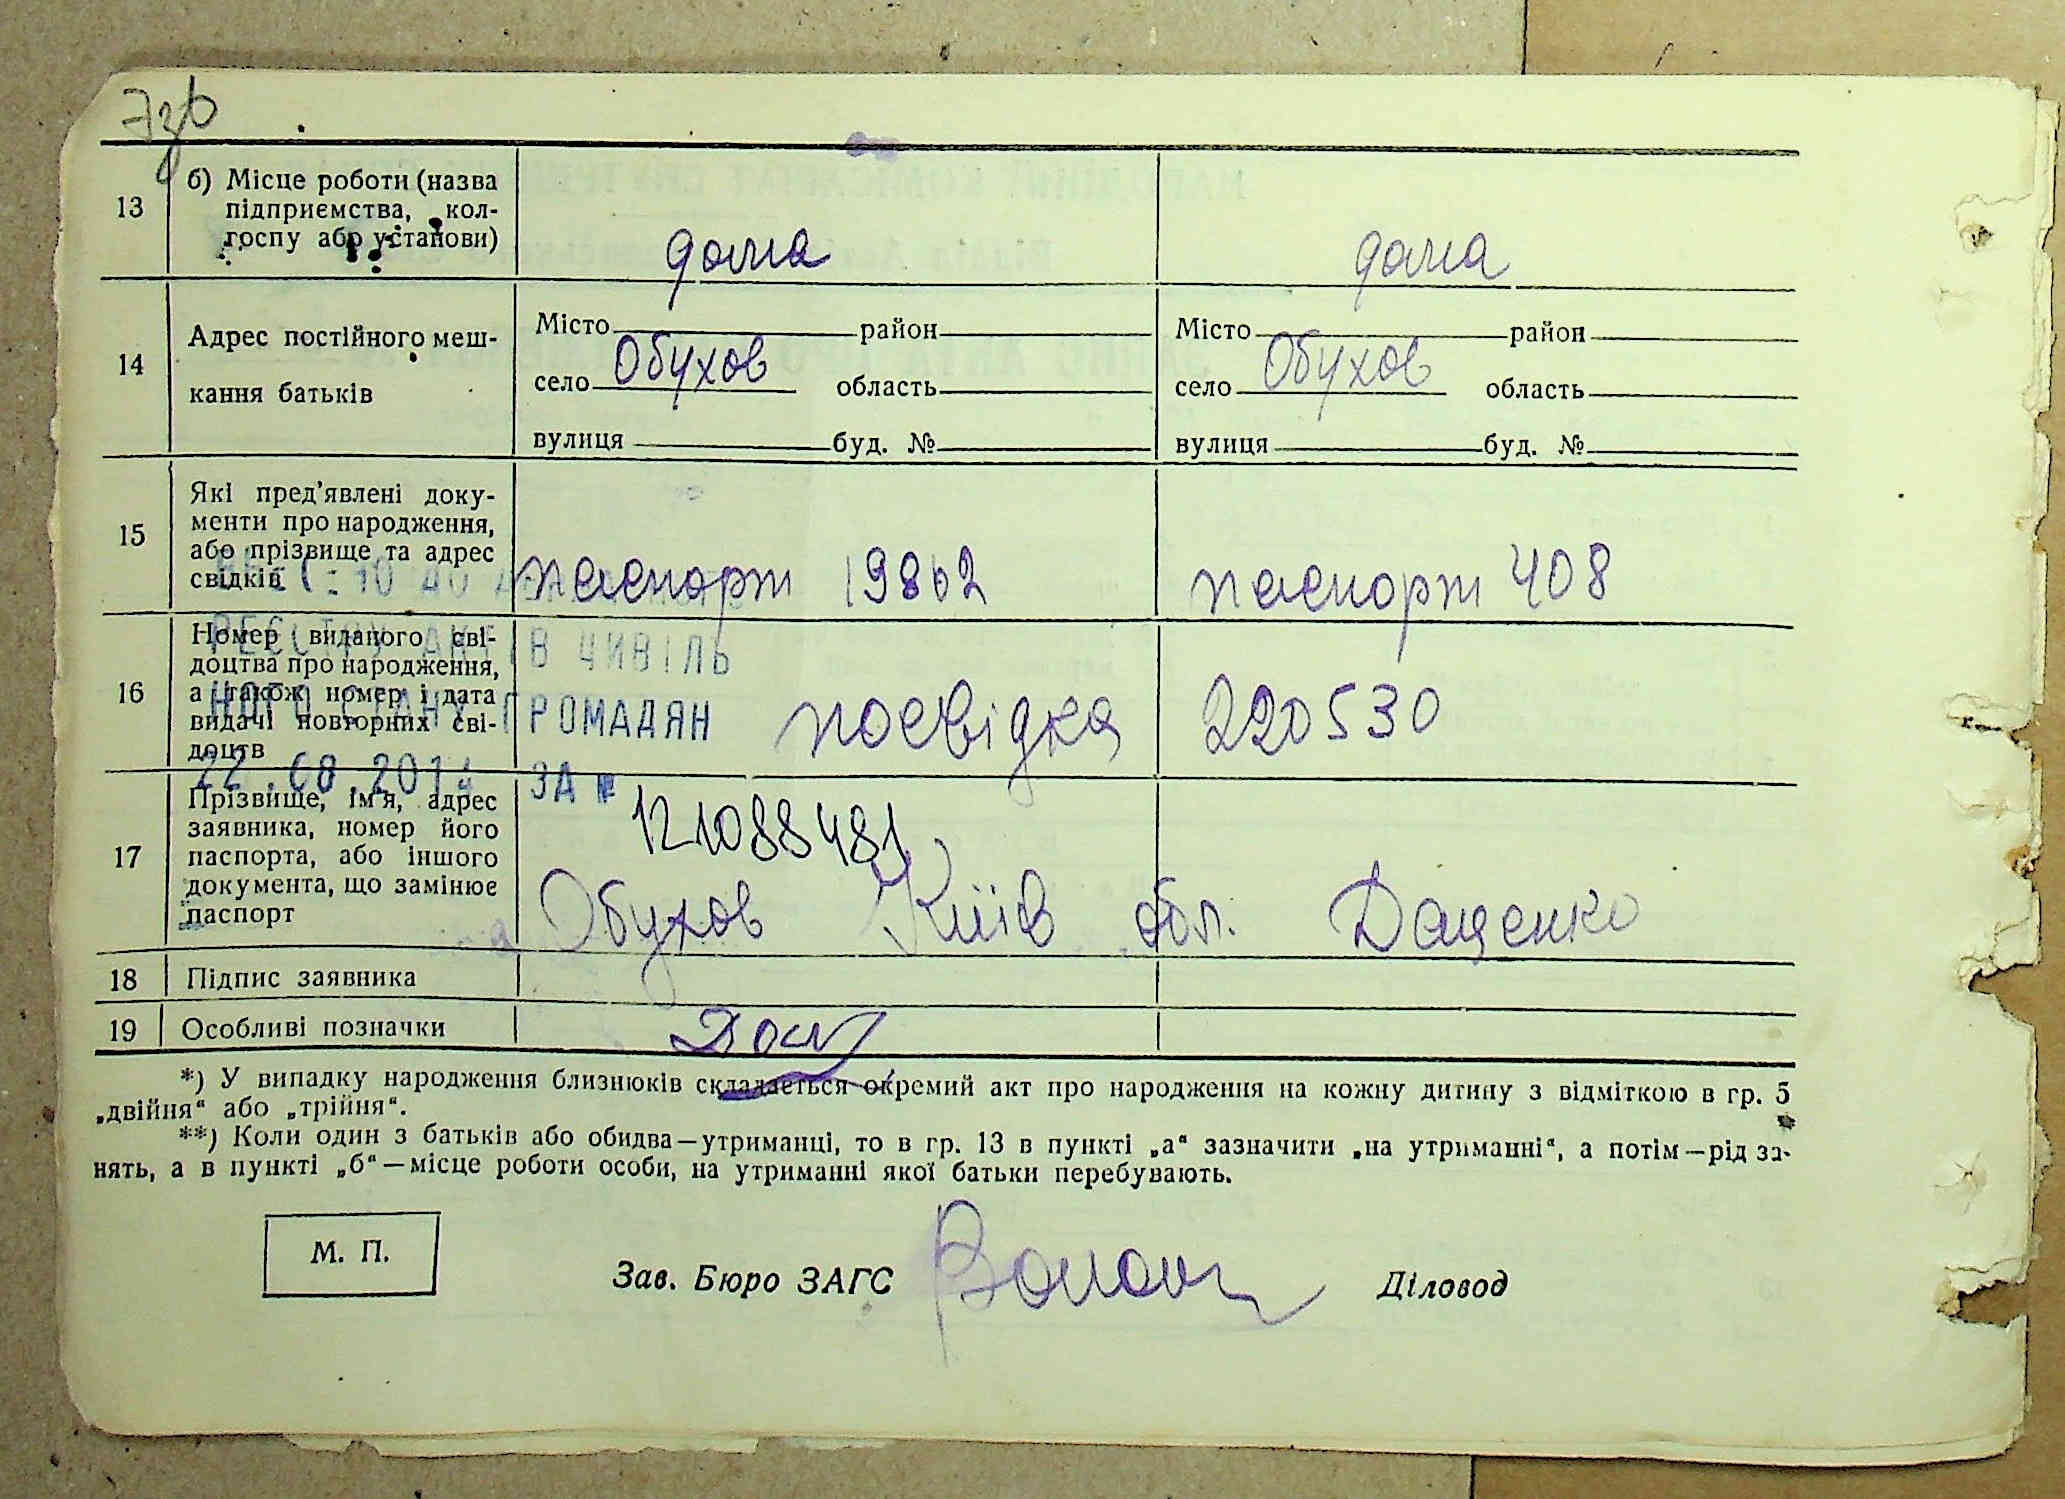 73б
13
б) Місце роботи (назва
підприємства, кол-
госпу або установи)
дома
дома
14
Адрес постійного меш-
кання батьків
Місто район
село Обухов область
вулиця буд. №
Місто район
село Обухов область
вулиця буд. №
15
Які пред'явлені доку-
менти про народження,
або прізвище та адрес
свідків
паспорт 19862
паспорт 408
16
Номер виданого сві-
доцтва про народження,
а також номер і дата
видачі повторних сві-
доцтв
РЕЄСТРУ АКТІВ ЦИВІЛЬ
НОГО СТАНУ ГРОМАДЯН
22.08.2014 ЗА №
121088481
посвідка 220530
17
Прізвище, ім'я, адрес
заявника, номер його
паспорта, або іншого
документа, що замінює
паспорт
Обухов Київ обл. Даценко
18
Підпис заявника
19
Особливі позначки
*) У випадку народження близнюків складається окремий акт про народження на кожну дитину з відміткою в гр. 5
„двійня“ або „трійня“.
**) Коли один з батьків або обидва—утриманці, то в гр. 13 в пункті „а“ зазначити „на утриманні“, а потім—рід за-
нять, а в пункті „б“—місце роботи особи, на утриманні якої батьки перебувають.
М. П.
Зав. Бюро ЗАГС
Діловод